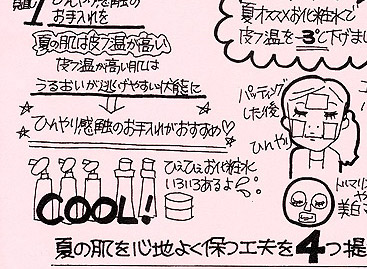 ひんやり感触の
お手入れを
夏の肌は皮フ温が高い
皮フ温が高い肌は
うるおいが逃げやすい状態に
ひんやり感触のお手入れがおすすめ♡
ひえひえお化粧水
いろいろあるよ
COOL!
夏オススメお化粧水で
皮フ温を-3℃下げま
パッティング
した後
ひんやり
トルマリン
や
美白マ
夏の肌を心地よく保つ工夫を4つ提